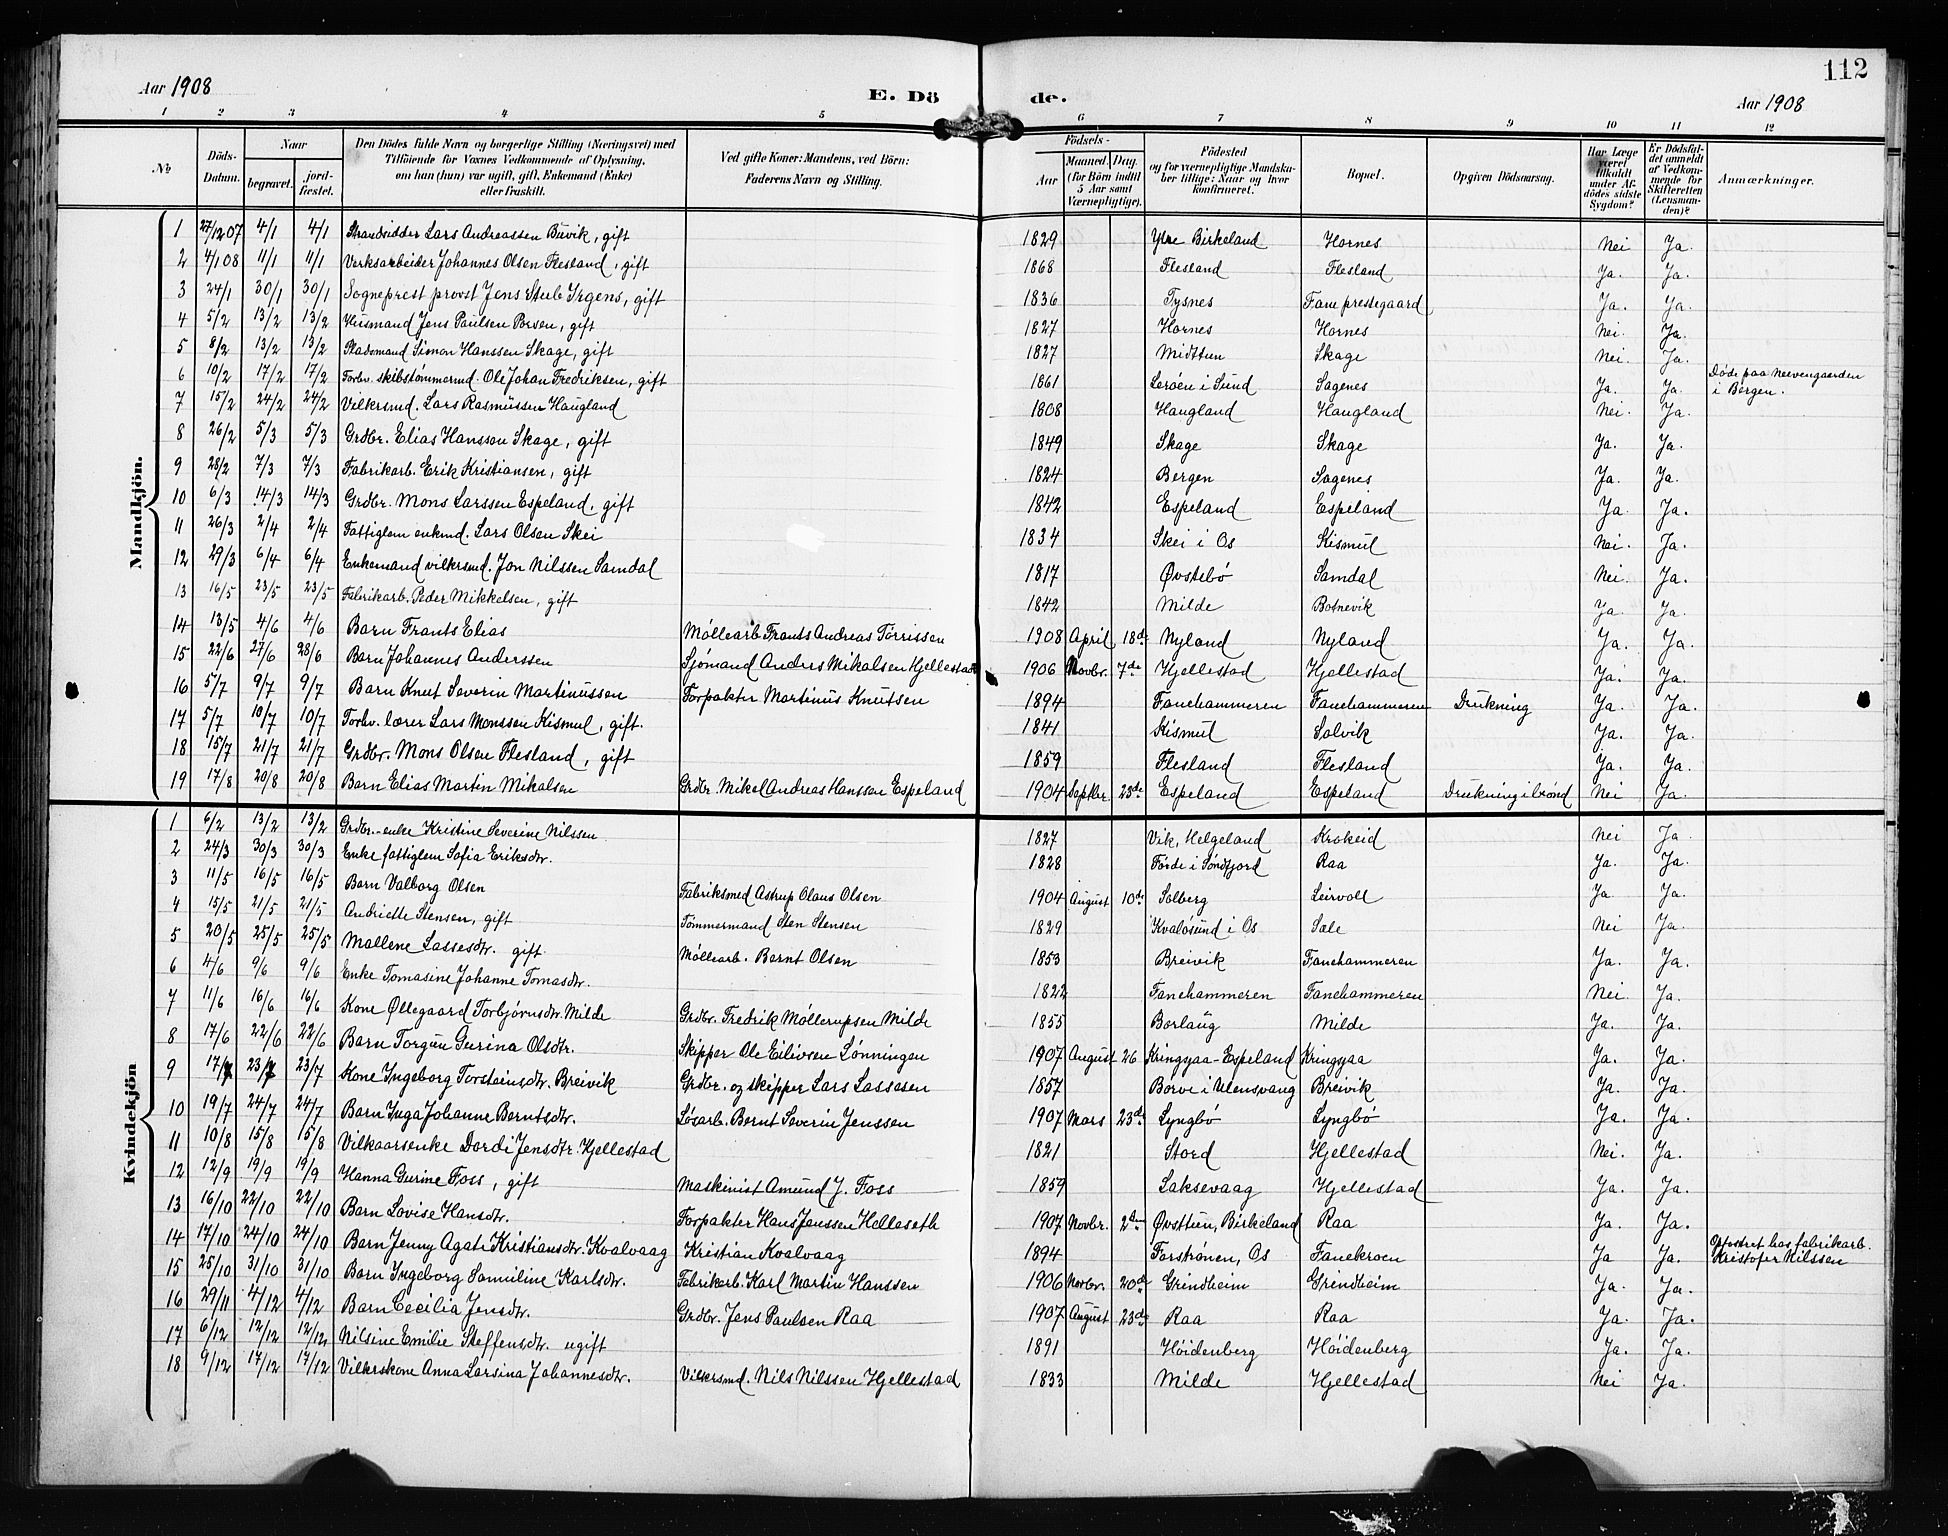 112
Aar 1908
E. Dö de.
Aar 1908
1 2 3 4 5 6 7 8 9 10 11 12
No
Döds-Datum.
Naar
begravet.
jord-fæstet.
Den Dödes fulde Navn og borgerlige Stilling (Næringsvei) med
Tilföiende for Voxnes Vedkommende af Oplysning,
om han (hun) var ugift, gift, Enkemand (Enke)
eller fraskilt.
Ved gifte Koner: Mandens, ved Börn:
Faderens Navn og Stilling.
Födsels-
Aar
Maaned. Dag.
(for Börn indtil
5 Aar samt
Værnepligtige).
Födested
og for værnepligtige Mandska-
ber tillige: Naar og hvor
konfirmeret.
Bopæl.
Opgiven Dödsaarsag.
Har Læge
været
tilkaldt
under Af-
dödes sidste
Sygdom?
Er Dödsfal-
det anmeldt
af Vedkom-
mende for
Skifteretten
(Lensman-
den)?
Anmærkninger.
Mandkjön.
1 27/12 07 4/1 4/1 Strandsidder Lars Andreassen Buvik, gift 1829 Ytre Birkeland Hornes Nei Ja.
2 4/1 08 11/1 11/1 Verksarbeider Johannes Olsen Flesland, gift 1868 Flesland Flesland Ja. Ja.
3 24/1 30/1 30/1 Sogneprest provst Jens Stub Irgens, gift 1836 Tysnes Fane prestegaard Ja. Ja.
4 5/2 13/2 13/2 Husmand Jens Paulsen gift 1827 Hornes Hornes Nei. Ja.
5 8/2 13/2 13/2 Pladsmand Simon Hanssen Skage, gift 1827 Midttun Skage Nei. Ja.
6 10/2 17/2 17/2 Forhv. skibstømmermd. Ole Johan Fredriksen, gift 1861 Lerøen i Sund Sagenes Ja. Ja. Døde paa Neevengaarden i Bergen.
7 15/2 24/2 24/2 Vilkrsmd. Lars Rasmussen Haugland 1808 Haugland Haugland Nei. Ja.
8 26/2 5/3 5/3 Grdbr. Elias Hansson Skage, gift 1849 Skage Skage Ja. Ja.
9 28/2 7/3 7/3 Fabrikarb. Erik Kristiansen, gift 1824 Bergen Sagenes Ja. Ja.
10 6/3 14/3 14/3 Grdbr. Mons Larssen Espeland, gift 1842 Espeland Espeland Ja Ja.
11 26/3 2/4 2/4 Fattiglem enkmd. Lars Olsen Skei 1834 Skei i Os Kismul Nei. Ja.
12 29/3 6/4 6/4 Enkemand vilkrsmd. Jon Nilssen Samdal 1817 Øvstebø Samdal Nei. Ja.
13 16/5 23/5 23/5 Fabrikarb. Peder Mikkelsen, gift 1842 Milde Botnevik Ja. Ja.
14 13/5 4/6 4/6 Barn Frants Elias Møllearb Frants Andreas Tørrissen 1908 April 18de Nyland Nyland Ja. Ja.
15 22/6 27/6 28/6 Barn Johannes Anderssen Sjømand Anders Mikalsen Hjellestad 1906 Novbr. 7de Hjellestad Hjellestad Ja. Ja.
16 5/7 9/7 9/7 Barn Knut Severin Martinussen Forpakter Martinus Knutsen 1894 Fanehammeren Fanehammeren Drukning Ja. Ja.
17 5/7 10/7 10/7 Forhv. lærer Lars Monssen Kismul, gift. 1841 Kismul Solvik Ja. Ja.
18 15/7 21/7 21/7 Grdbr. Mons Olsen Flesland, gift 1859 Flesland Flesland Ja. Ja.
19 17/8 20/8 20/8 Barn Elias Martin Mikalsen Grdbr. Mikal Andreas Hanssen Espeland 1904 Septbr. 23de Espeland Espeland Drukning i brønd Nei Ja.
Kvindekjön
1 6/2 13/2 13/2 Grdbr.-enke Kristine Severine Nilssen 1827 Vik, Helgeland Krokeid Nei Ja.
2 24/3 30/3 30/3 Enke fattiglem Sofia Eriksdtr. 1828 Førde i Søndfjord Raa Ja. Ja.
3 11/5 16/5 16/5 Barn Valborg Olsen Fabriksmed Astrup Olaus Olsen 1904 August 10de Solberg Leirvoll Ja Ja.
4 15/5 21/5 21/5 Andriette Stensen, gift Tømmermand Sten Stensen 1829 Kvaløsund i Os Sale Nei Ja.
5 20/5 25/5 25/5 Mallene Lassesdtr. gift Møllearb. Bernt Olsen 1853 Breivik Fanehammeren Ja. Ja.
6 4/6 9/6 9/6 Enke Tomasine Johanne Tomasdtr. 1822 Fanehammeren Fanehammeren Nei Ja.
7 11/6 16/6 16/6 Kone Øllegaard Torbjørnsdtr. Milde Grdbr. Fredrik Møllerupsen Milde 1855 Borlaug Milde Ja. Ja.
8 17/6 22/6 22/6 Barn Torgun Gurina Olsdtr. Skipper Ole Eilivsen Lønningen 1907 August 26 Kringyaa-Espeland Kringyaa Ja. Ja.
9 17/7 23/7 23/7 Kone Ingeborg Torsteinsdtr. Breivik Grdbr. og skipper Lars Lassesen 1857 Borve i Ulensvang Breivik Ja. Ja.
10 19/7 24/7 24/7 Barn Inga Johanne Berntsdtr. Løsarb. Bernt Severin Jenssen 1907 Mars 23de Lyngbø Lyngbø Ja. Ja.
11 10/8 15/8 15/8 Vilkaarsenke Dordi Jensdtr. Hjellestad 1821 Stord Hjellestad Nei. Ja.
12 12/9 19/9 19/9 Hanna Gurine Foss, gift Maskinist Amund J. Foss 1859 Laksevaag Hjellestad Ja. Ja.
13 16/10 22/10 22/10 Barn Lovise Hansdtr. Forpakter Hans Jenssen Helleseth 1907 Novbr. 2den Øvsttun, Birkeland Raa Ja. Ja.
14 17/10 24/10 24/10 Barn Jenny Agati Kristiansdtr. Kvalvaag Kristian Kvalvaag 1894 Forstrønen, Os Fanekroen Ja Ja. Opfostret hos fabrikarb. Kristofer Nilssen
15 25/10 31/10 31/10 Barn Ingeborg Samuline Karlsdtr. Fabrikarb. Karl Martin Hanssen 1906 Novbr. 20de Grindheim Grindheim Ja. Ja.
16 29/11 4/12 4/12 Barn Cecilia Jensdtr. Grdbr. Jens Paulsen Raa 1907 August 23de Raa Raa Ja. Ja.
17 6/12 12/12 12/12 Nilsine Emilie Steffensdtr. ugift 1891 Høidenberg Høidenberg Ja. Ja.
18 9/12 17/12 17/12 Vilkrskone Anna Larsina Johannesdtr. Vilkrsmd. Nils Nilssen Hjellestad 1833 Milde Hjellestad Nei Ja.